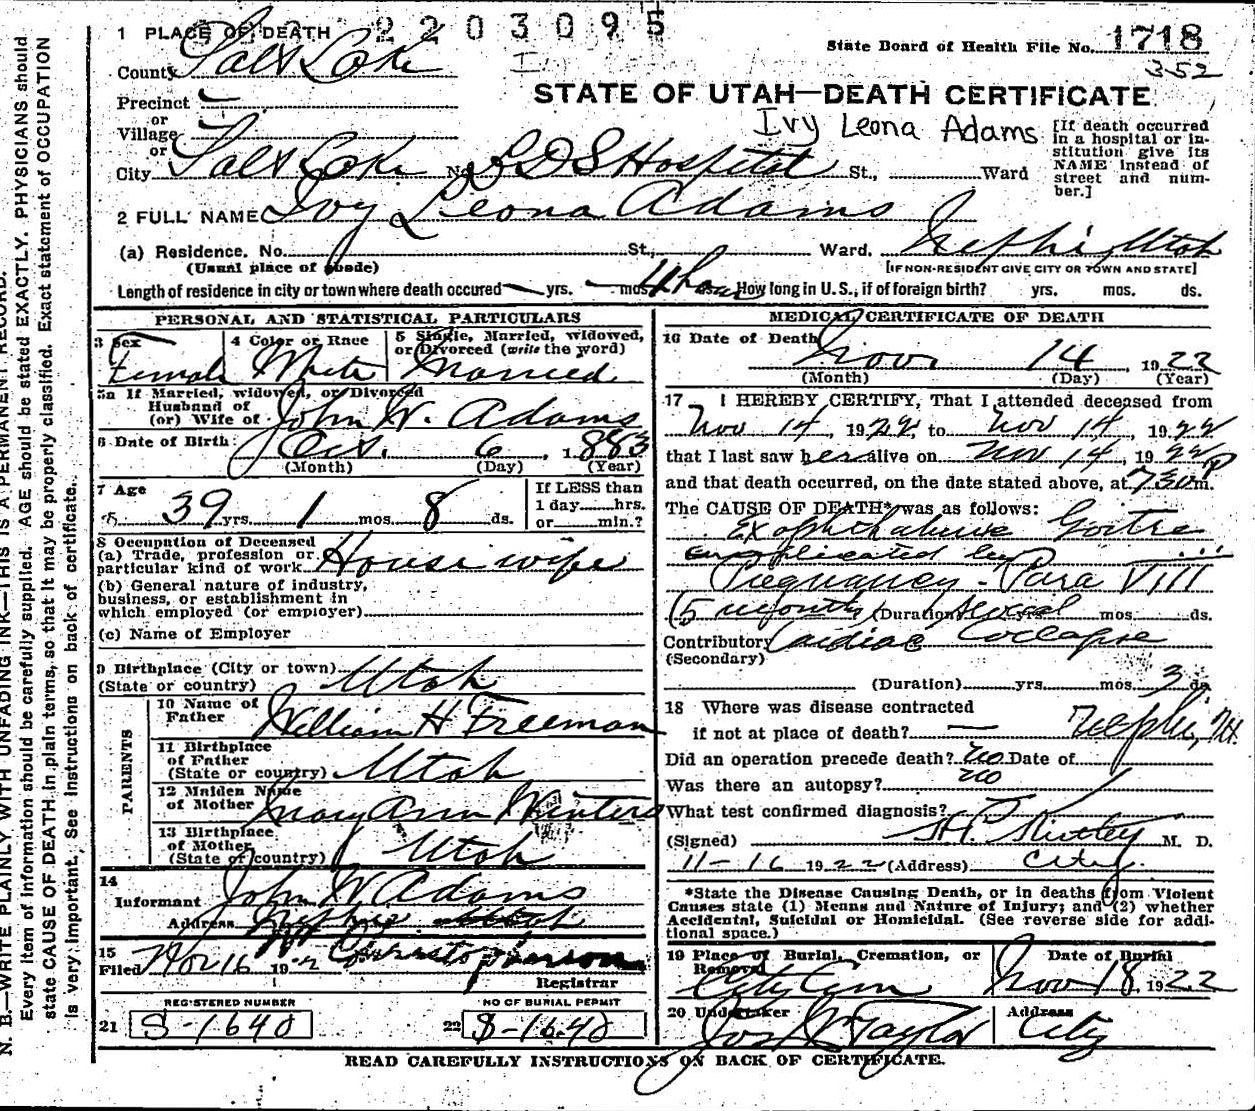 2203095
1 PLACE OF DEATH
State Board of Health File No. 1718
County Salt Lake
I
352
STATE OF UTAH—DEATH CERTIFICATE
Precinct
or
Village
Ivy Leona Adams
[If death occurred in a hospital or institution give its NAME instead of street and number.]
or
City Salt Lake No. LDS Hospital St., Ward
2 FULL NAME Ivy Leona Adams
(a) Residence. No. St., Ward. Nephi, Utah
(Usual place of abode) [IF NON-RESIDENT GIVE CITY OR TOWN AND STATE]
Length of residence in city or town where death occured yrs. mos. ds. How long in U. S., if of foreign birth? yrs. mos. ds.
PERSONAL AND STATISTICAL PARTICULARS
3 Sex 4 Color or Race 5 Single, Married, widowed, or Divorced (write the word)
Female White Married
5a If Married, widowed, or Divorced
Husband of
(or) Wife of John W. Adams
6 Date of Birth Oct. 6, 1883
(Month) (Day) (Year)
7 Age 39 yrs. 1 mos. 8 ds.
If LESS than 1 day hrs. or min.?
8 Occupation of Deceased
(a) Trade, profession or particular kind of work Housewife
(b) General nature of industry, business, or establishment in which employed (or employer)
(c) Name of Employer
9 Birthplace (City or town)
(State or country) Utah
PARENTS
10 Name of Father William H Freeman
11 Birthplace of Father (State or country) Utah
12 Maiden Name of Mother Mary Ann Winters
13 Birthplace of Mother (State or country) Utah
14
Informant John W Adams
Address Nephi Utah
15
Filed Nov 16 19
Registrar
REGISTERED NUMBER NO OF BURIAL PERMIT
21 S-1640 22 S-1640
MEDICAL CERTIFICATE OF DEATH
16 Date of Death Nov. 14 1922
(Month) (Day) (Year)
17 I HEREBY CERTIFY, That I attended deceased from
Nov 14, 1922, to Nov 14, 1922
that I last saw her alive on Nov 14, 1922
and that death occurred, on the date stated above, at 730 P m.
The CAUSE OF DEATH* was as follows:
Exophthalmic Goitre
complicated by
Pregnancy - Para VIII
(5 months (Duration) Several yrs. mos. ds.
Contributory Cardiac Collapse
(Secondary)
(Duration) yrs. mos. 3 ds.
18 Where was disease contracted
if not at place of death? Nephi, Ut.
Did an operation precede death? no Date of
Was there an autopsy? no
What test confirmed diagnosis?
(Signed) M. D.
11-16 1922 (Address) City.
*State the Disease Causing Death, or in deaths from Violent
Causes state (1) Means and Nature of Injury; and (2) whether
Accidental, Suicidal or Homicidal. (See reverse side for additional space.)
19 Place of Burial, Cremation, or Removal Date of Burial
City Cem Nov 18, 1922
20 Undertaker Address
Jos Wm Taylor City
READ CAREFULLY INSTRUCTIONS ON BACK OF CERTIFICATE.
N. B.—WRITE PLAINLY WITH UNFADING INK—THIS IS A PERMANENT RECORD.
Every item of information should be carefully supplied. AGE should be stated EXACTLY. PHYSICIANS should
state CAUSE OF DEATH in plain terms, so that it may be properly classified. Exact statement of OCCUPATION
is very important. See instructions on back of certificate.